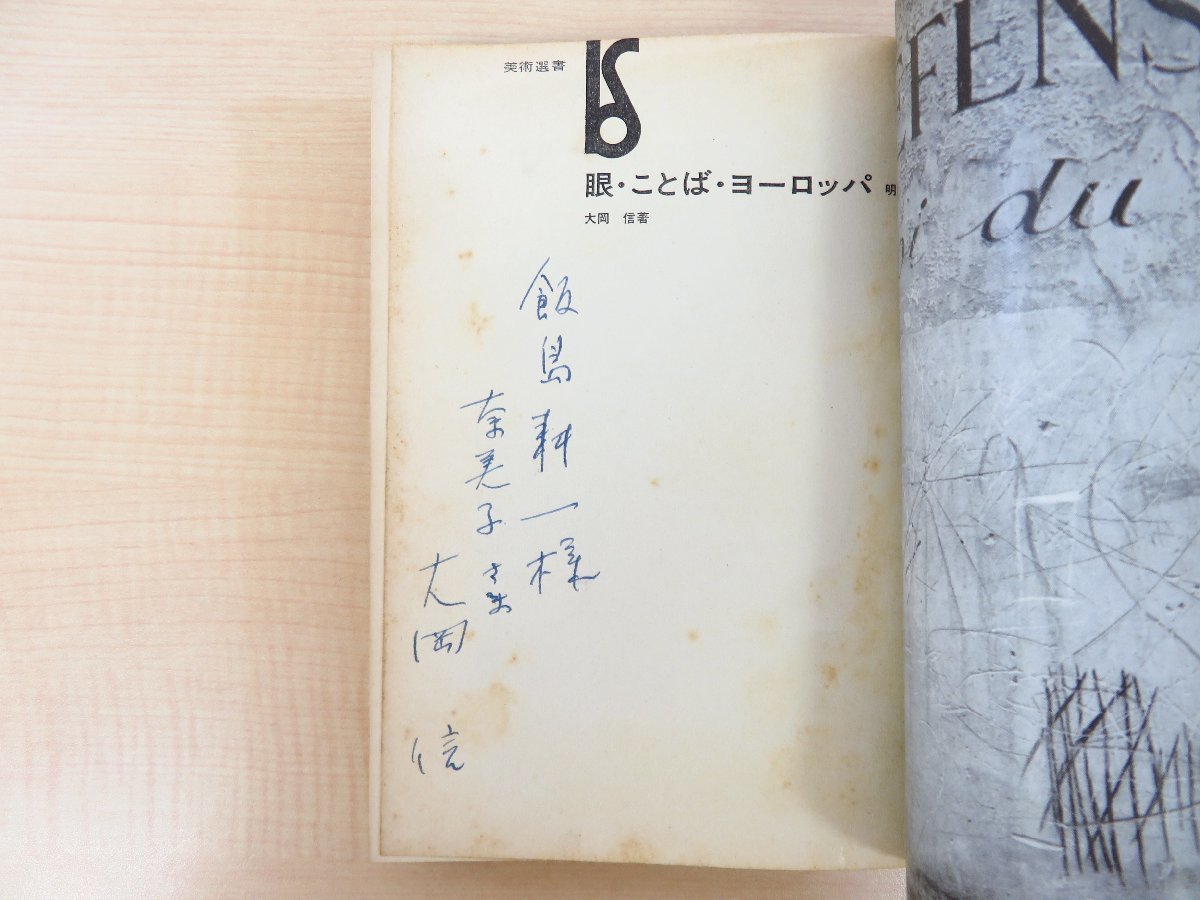 美術選書
眼・ことば・ヨーロッパ 明
大岡 信著
飯島耕一様
奈美子さま
大岡 信
EFENS
du